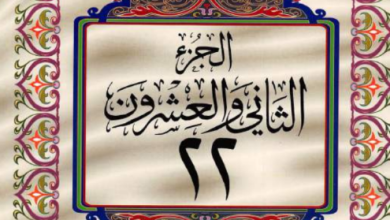 الجزء
الثاني والعشرون
٢٢